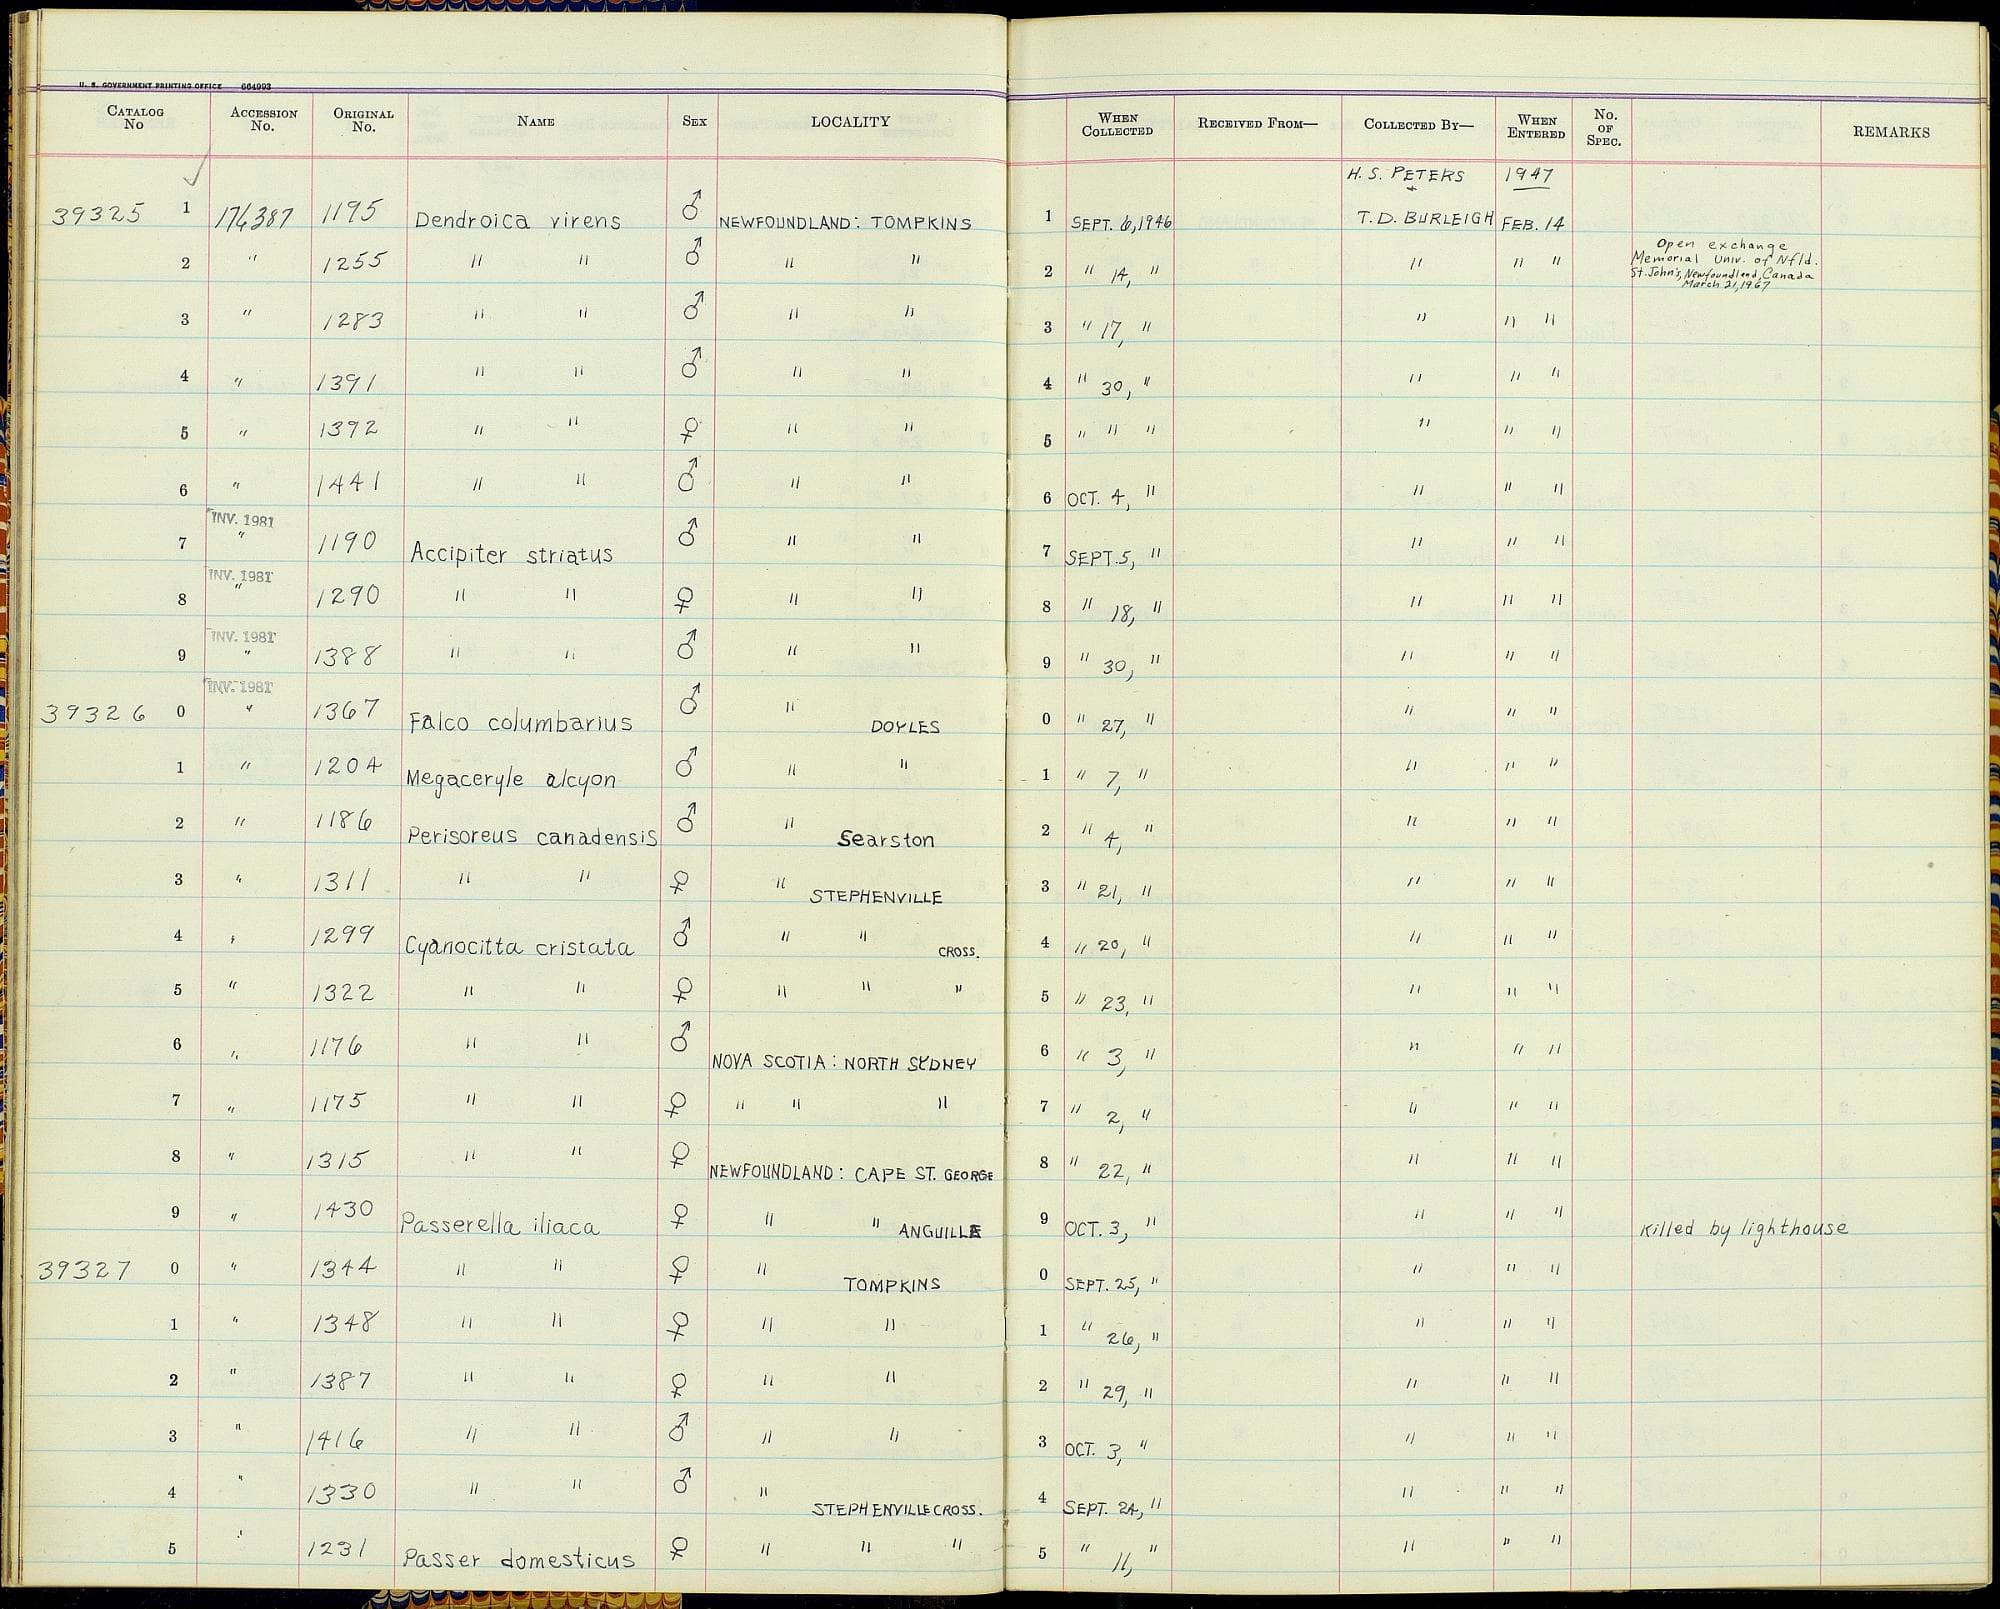 U. S. GOVERNMENT PRINTING OFFICE 664993
CATALOG No ACCESSION No. ORIGINAL No. NAME SEX LOCALITY WHEN COLLECTED RECEIVED FROM— COLLECTED BY— WHEN ENTERED No. OF SPEC. REMARKS
H. S. PETERS 1947
+
39325 1 176387 1195 Dendroica virens ♂ NEWFOUNDLAND: TOMPKINS 1 SEPT. 6, 1946 T. D. BURLEIGH FEB. 14
2 " 1255 " " ♂ " " 2 " 14, " " " " Open exchange
Memorial Univ. of Nfld.
St. John's, Newfoundland, Canada
March 21, 1967
3 " 1283 " " ♂ " " 3 " 17, " " " "
4 " 1391 " " ♂ " " 4 " 30, " " " "
5 " 1392 " " ♀ " " 5 " " " " " "
6 " 1441 " " ♂ " " 6 OCT. 4, " " " "
INV. 1981
7 " 1190 Accipiter striatus ♂ " " 7 SEPT. 5, " " " "
INV. 1981
8 " 1290 " " ♀ " " 8 " 18, " " " "
INV. 1981
9 " 1388 " " ♂ " " 9 " 30, " " " "
INV. 1981
39326 0 " 1367 Falco columbarius ♂ " DOYLES 0 " 27, " " " "
1 " 1204 Megaceryle alcyon ♂ " " 1 " 7, " " " "
2 " 1186 Perisoreus canadensis ♂ " Searston 2 " 4, " " " "
3 " 1311 " " ♀ " STEPHENVILLE 3 " 21, " " " "
4 " 1299 Cyanocitta cristata ♂ " " CROSS. 4 " 20, " " " "
5 " 1322 " " ♀ " " " 5 " 23, " " " "
6 " 1176 " " ♂ NOVA SCOTIA: NORTH SYDNEY 6 " 3, " " " "
7 " 1175 " " ♀ " " " 7 " 2, " " " "
8 " 1315 " " ♀ NEWFOUNDLAND: CAPE ST. GEORGE 8 " 22, " " " "
9 " 1430 Passerella iliaca ♀ " " ANGUILLE 9 OCT. 3, " " " " Killed by lighthouse
39327 0 " 1344 " " ♀ " TOMPKINS 0 SEPT. 25, " " " "
1 " 1348 " " ♀ " " 1 " 26, " " " "
2 " 1387 " " ♀ " " 2 " 29, " " " "
3 " 1416 " " ♂ " " 3 OCT. 3, " " " "
4 " 1330 " " ♂ " STEPHENVILLE CROSS. 4 SEPT. 24, " " " "
5 " 1231 Passer domesticus ♀ " " " 5 " 11, " " " "